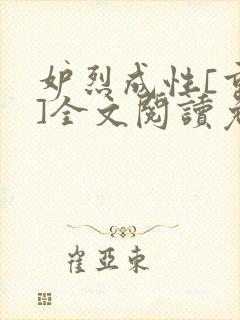 妒烈成性[重
]全文閱讀老
崔亞東